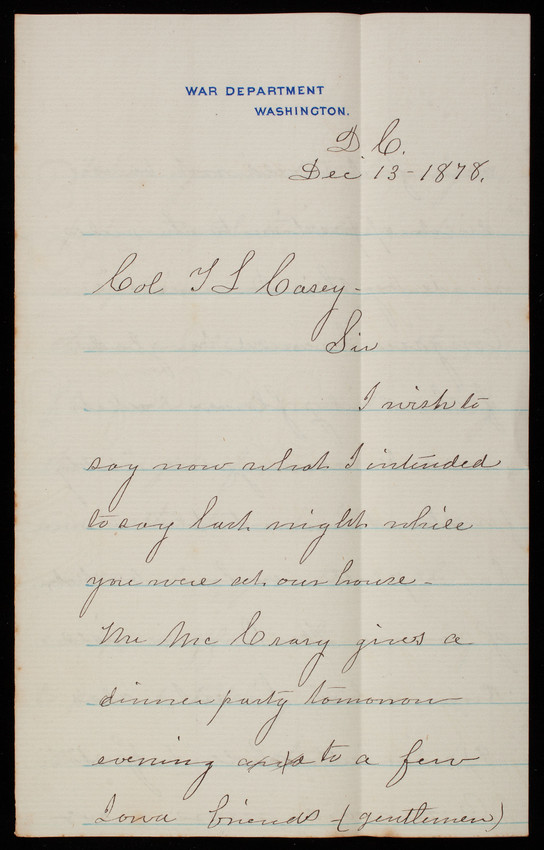 WAR DEPARTMENT
WASHINGTON.
D C.
Dec 13-1878.
Col T L Casey-
Sir
I wish to
say now what I intended
to say last night while
you were at our house-
Mr Mc Crary gives a
dinner party tomorrow
evening to a few
Iowa friends-(gentlemen)